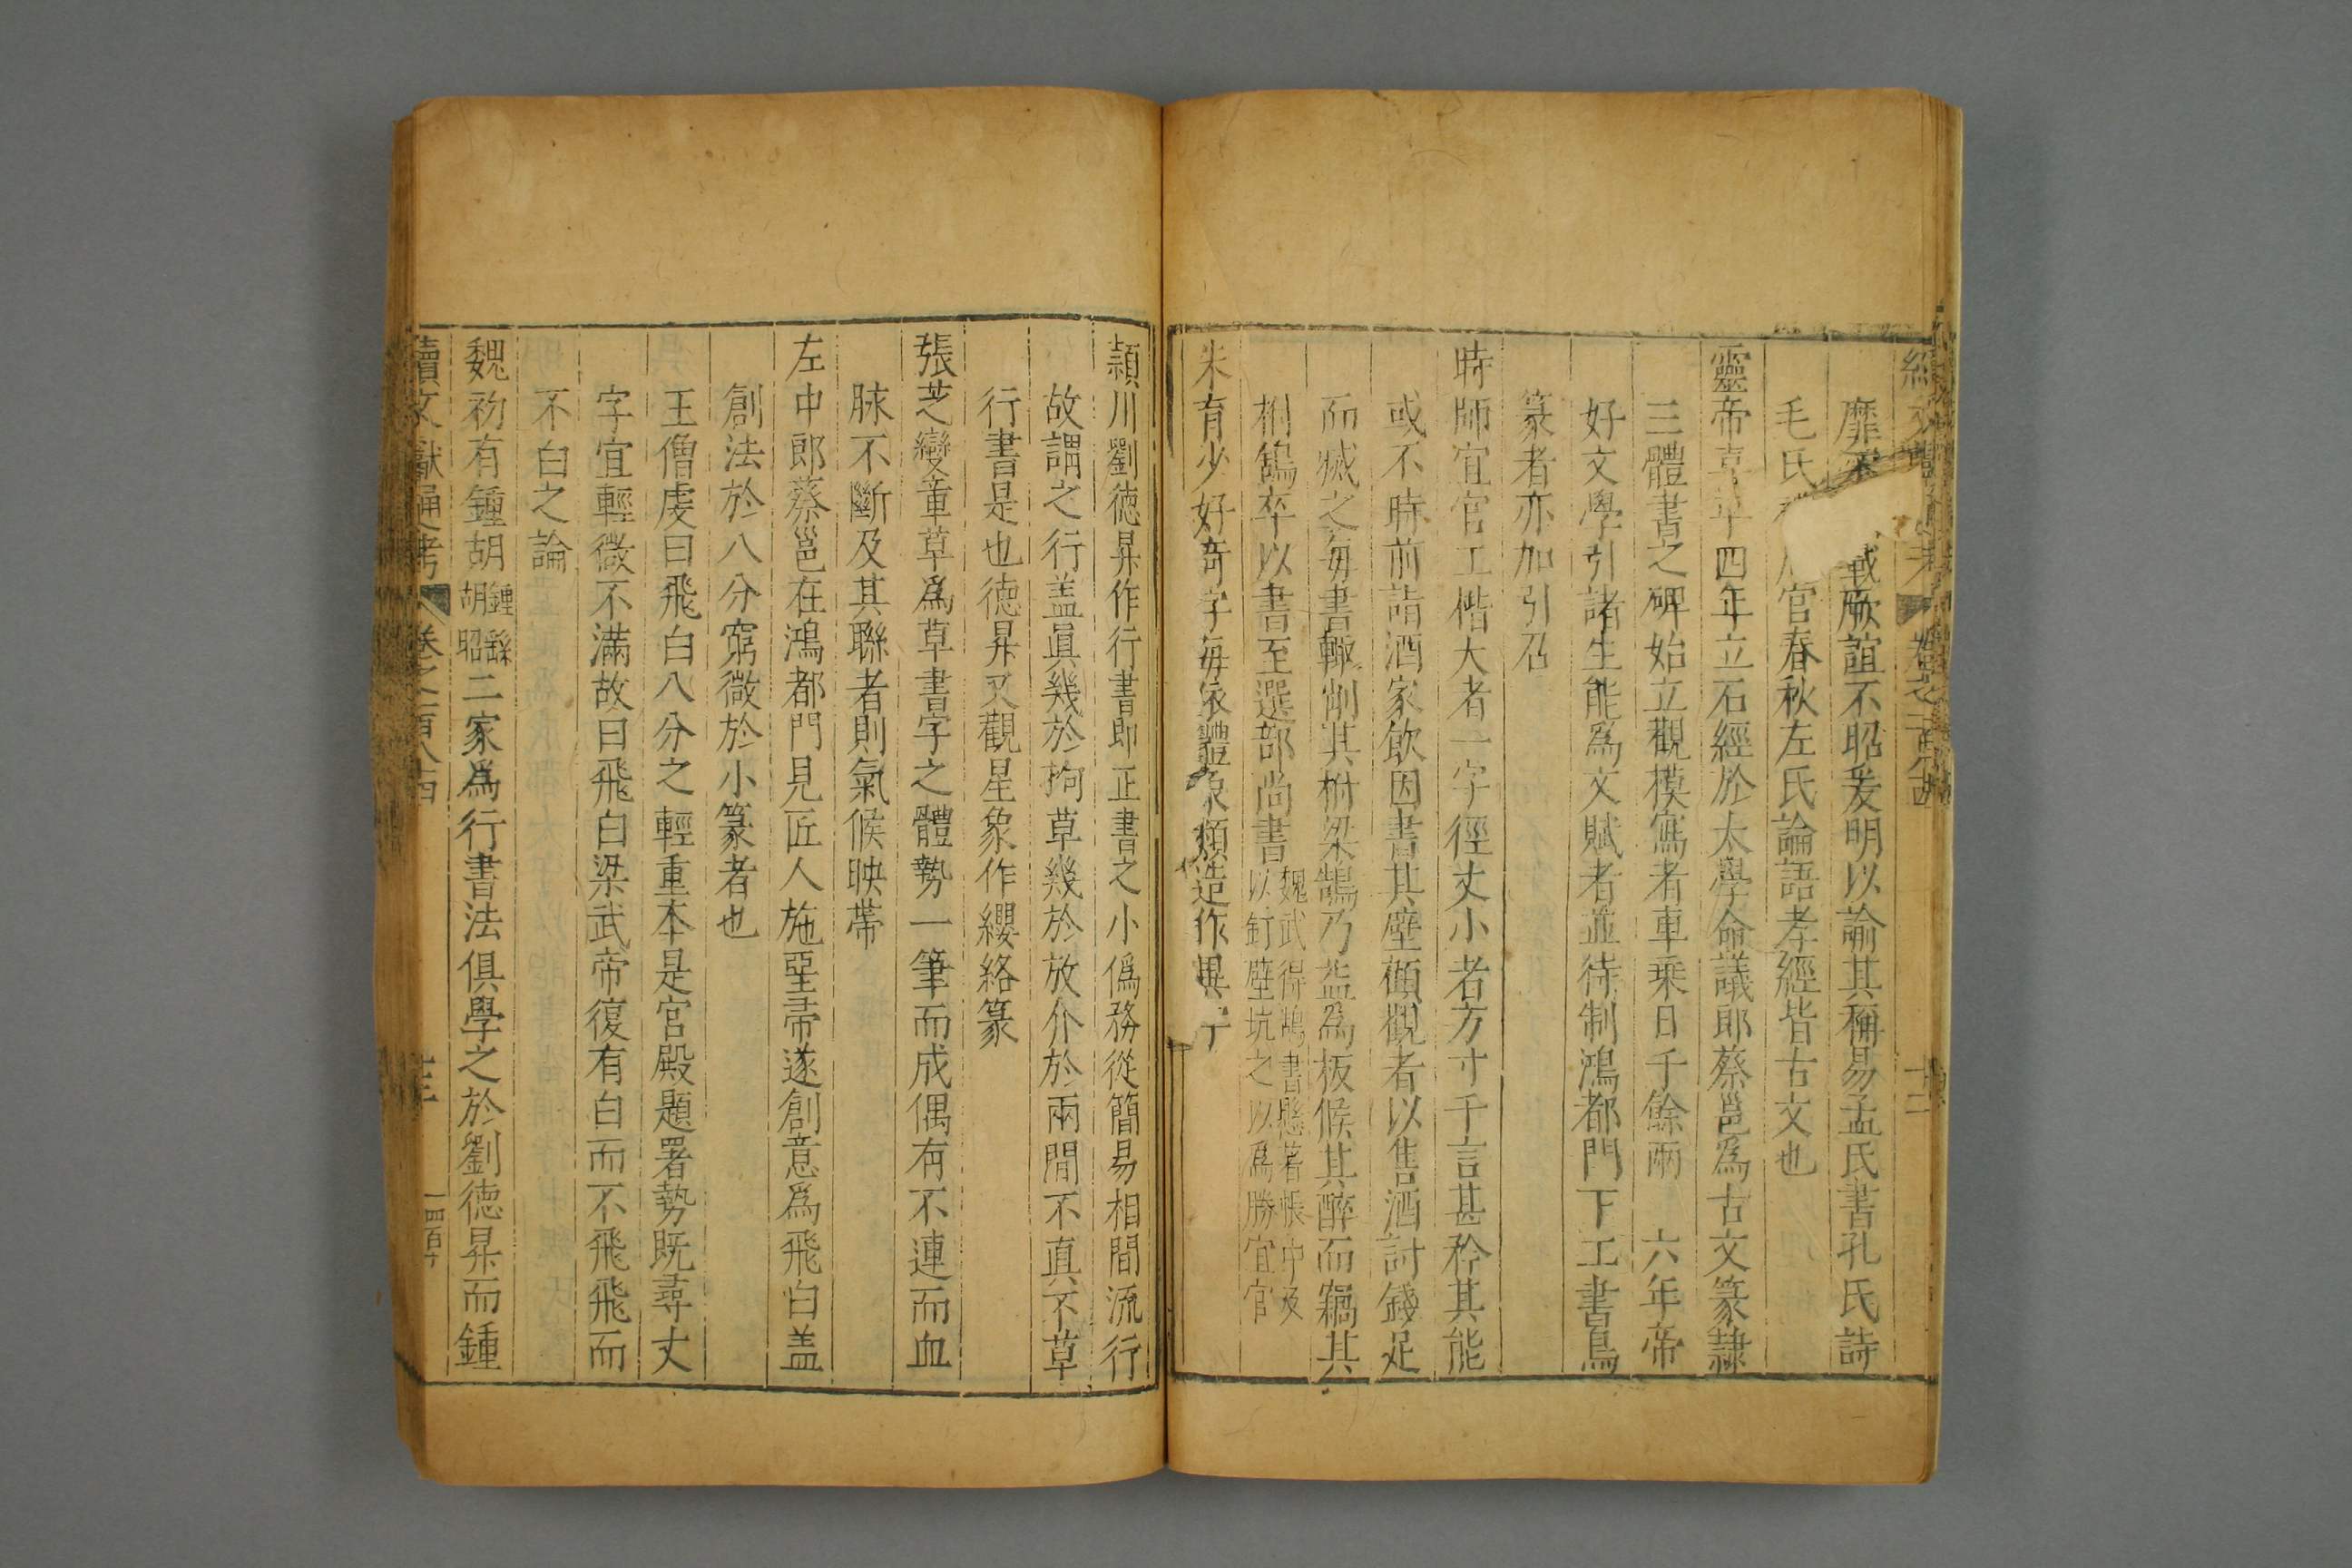 靡不載厥誼不昭爰明以諭其稱易孟氏書孔氏詩
毛氏官春秋左氏論語孝經皆古文也
靈帝熹平四年立石經於太學命議郎蔡邕爲古文篆隸
三體書之碑始立觀模寫者車乘日千餘兩 六年帝
好文學引諸生能爲文賦者並待制鴻都門下工書鳥
篆者亦加引召
時師宜官工楷大者一字徑丈小者方寸千言甚矜其能
或不時前詣酒家飲因書其壁顧觀者以售酒討錢足
而滅之每書輙削其柎梁鵠乃益爲板候其醉而竊其
柎鵠卒以書至選部尚書魏武得鵠書懸著帳中及
以釘壁玩之以爲勝宜官
朱育少好奇字每依體象類造作異字
頴川劉德昇作行書即正書之小僞務從簡易相間流行
故謂之行盖眞幾於拘草幾於放介於兩間不真不草
行書是也德昇又觀星象作纓絡篆
張芝變章草爲草書字之體勢一筆而成偶有不連而血
脉不斷及其聯者則氣候映帶
左中郎蔡邕在鴻都門見匠人施堊帚遂創意爲飛白盖
創法於八分窮微於小篆者也
王僧虔曰飛白八分之輕重本是宮殿題署勢既尋丈
字宜輕微不滿故曰飛白梁武帝復有白而不飛飛而
不白之論
魏初有鍾胡鍾繇
胡昭二家爲行書法俱學之於劉德昇而鍾
續文獻通考 卷之一百八十四 十三